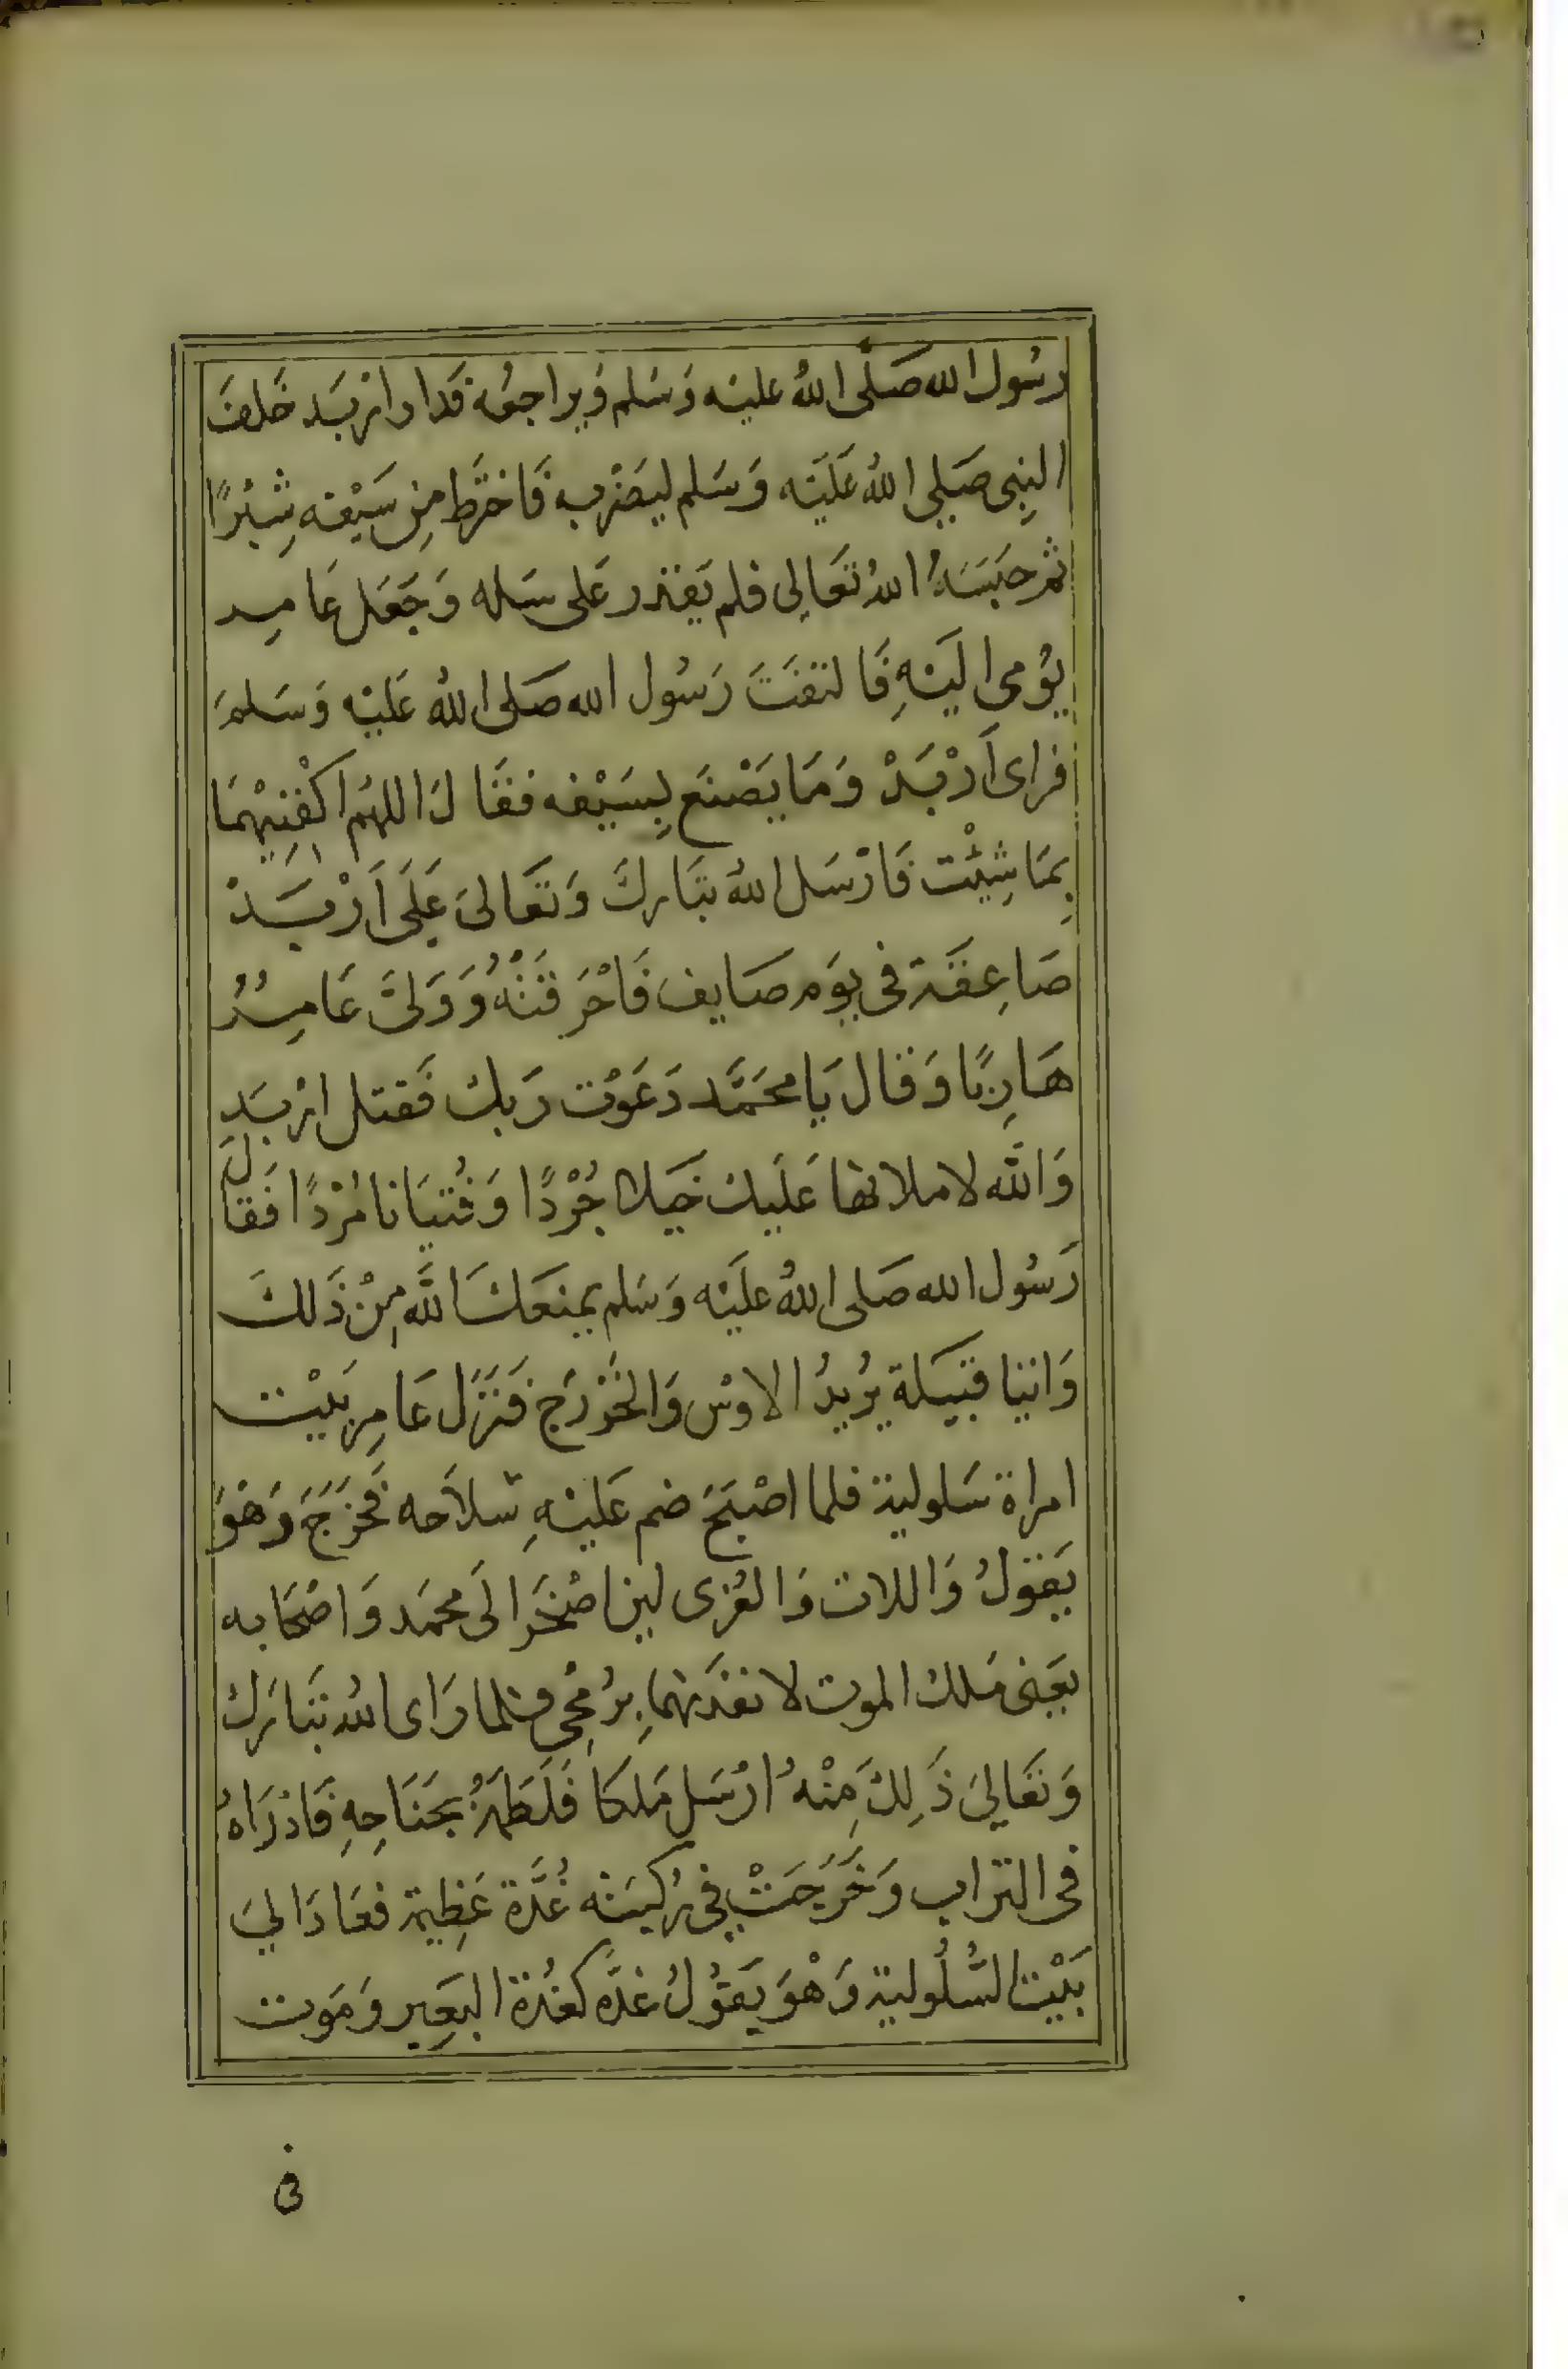 رسُول الله صَلَّى اللهُ عليْه وَسَلم وَيراجعُه فَدار اربَد خَلفَ
النبِى صَلي اللهُ عَلَيْه وَسَلم ليَضْربه فَاخترَط مِن سَيْفه شِبْرًا
ثم حَبَسَهُ اللهُ تعَالي فلم يَقدر عَلى سَله وَجَعَل عَامر
يُومي اليَهِ فَالتفتَ رَسُول الله صَلى اللهُ عَليْه وَسَلمَ
فراى اَرْبَدْ وَمَا يَصْنَع بِسَيْفه فقَال اللهُم اكْفِنِيْهمَا
بِمَا شِئْت فَارْسَل اللهُ تبَارك وَتعَالىَ عَلَى اَرْبَدْ
صَاعِقَة في يوَم صَايف فَاحْرَقتْهُ وَوَلىَّ عَامِرُ
هَارِبًا وَقال يَا محَمَّد دَعَوْت رَبك فَقتل اربَد
وَاللَّه لاملانها عَلَيك خَيلا جُرْدًا وَفُتيَانا مُرْدًا فَقَالَ
رَسُول الله صَلى اللهُ عَلَيْه وَسَلم يمنعَك اللَّه مِنْ ذَلكَ
وَابنا قَبيَلة يُريدُ الاوسْ وَالخَزْرَج فَنَزَل عَامِر بَيْت
امراة سَلولية فلما اصْبَحَ ضم عَليْهِ سلاَحه فَخَرَجَ وَهوَ
يَقولُ وَاللات وَالعُزى لين اصْحَرَ الَى محمَد وَاصْحَابه
يعَني مَلك الموت لانفذنهمَا بِرُمْحِي فلما رَاى اللهُ تبَارَك
وَتعَاليَ ذَلِكَ مِنْهُ ارْسَل مَلكَا فَلَطَمَهُ بجَنَاحِهِ فَاذْرَاهُ
في التراب وَخَرَجَتْ في رُكبَته غُدَّة عَظِيمة فعَادَ اليَ
بَيْت السَّلُولية وَهْوَ يَقوُلُ غدَّة كغُدة البعِير وَمَوت
في